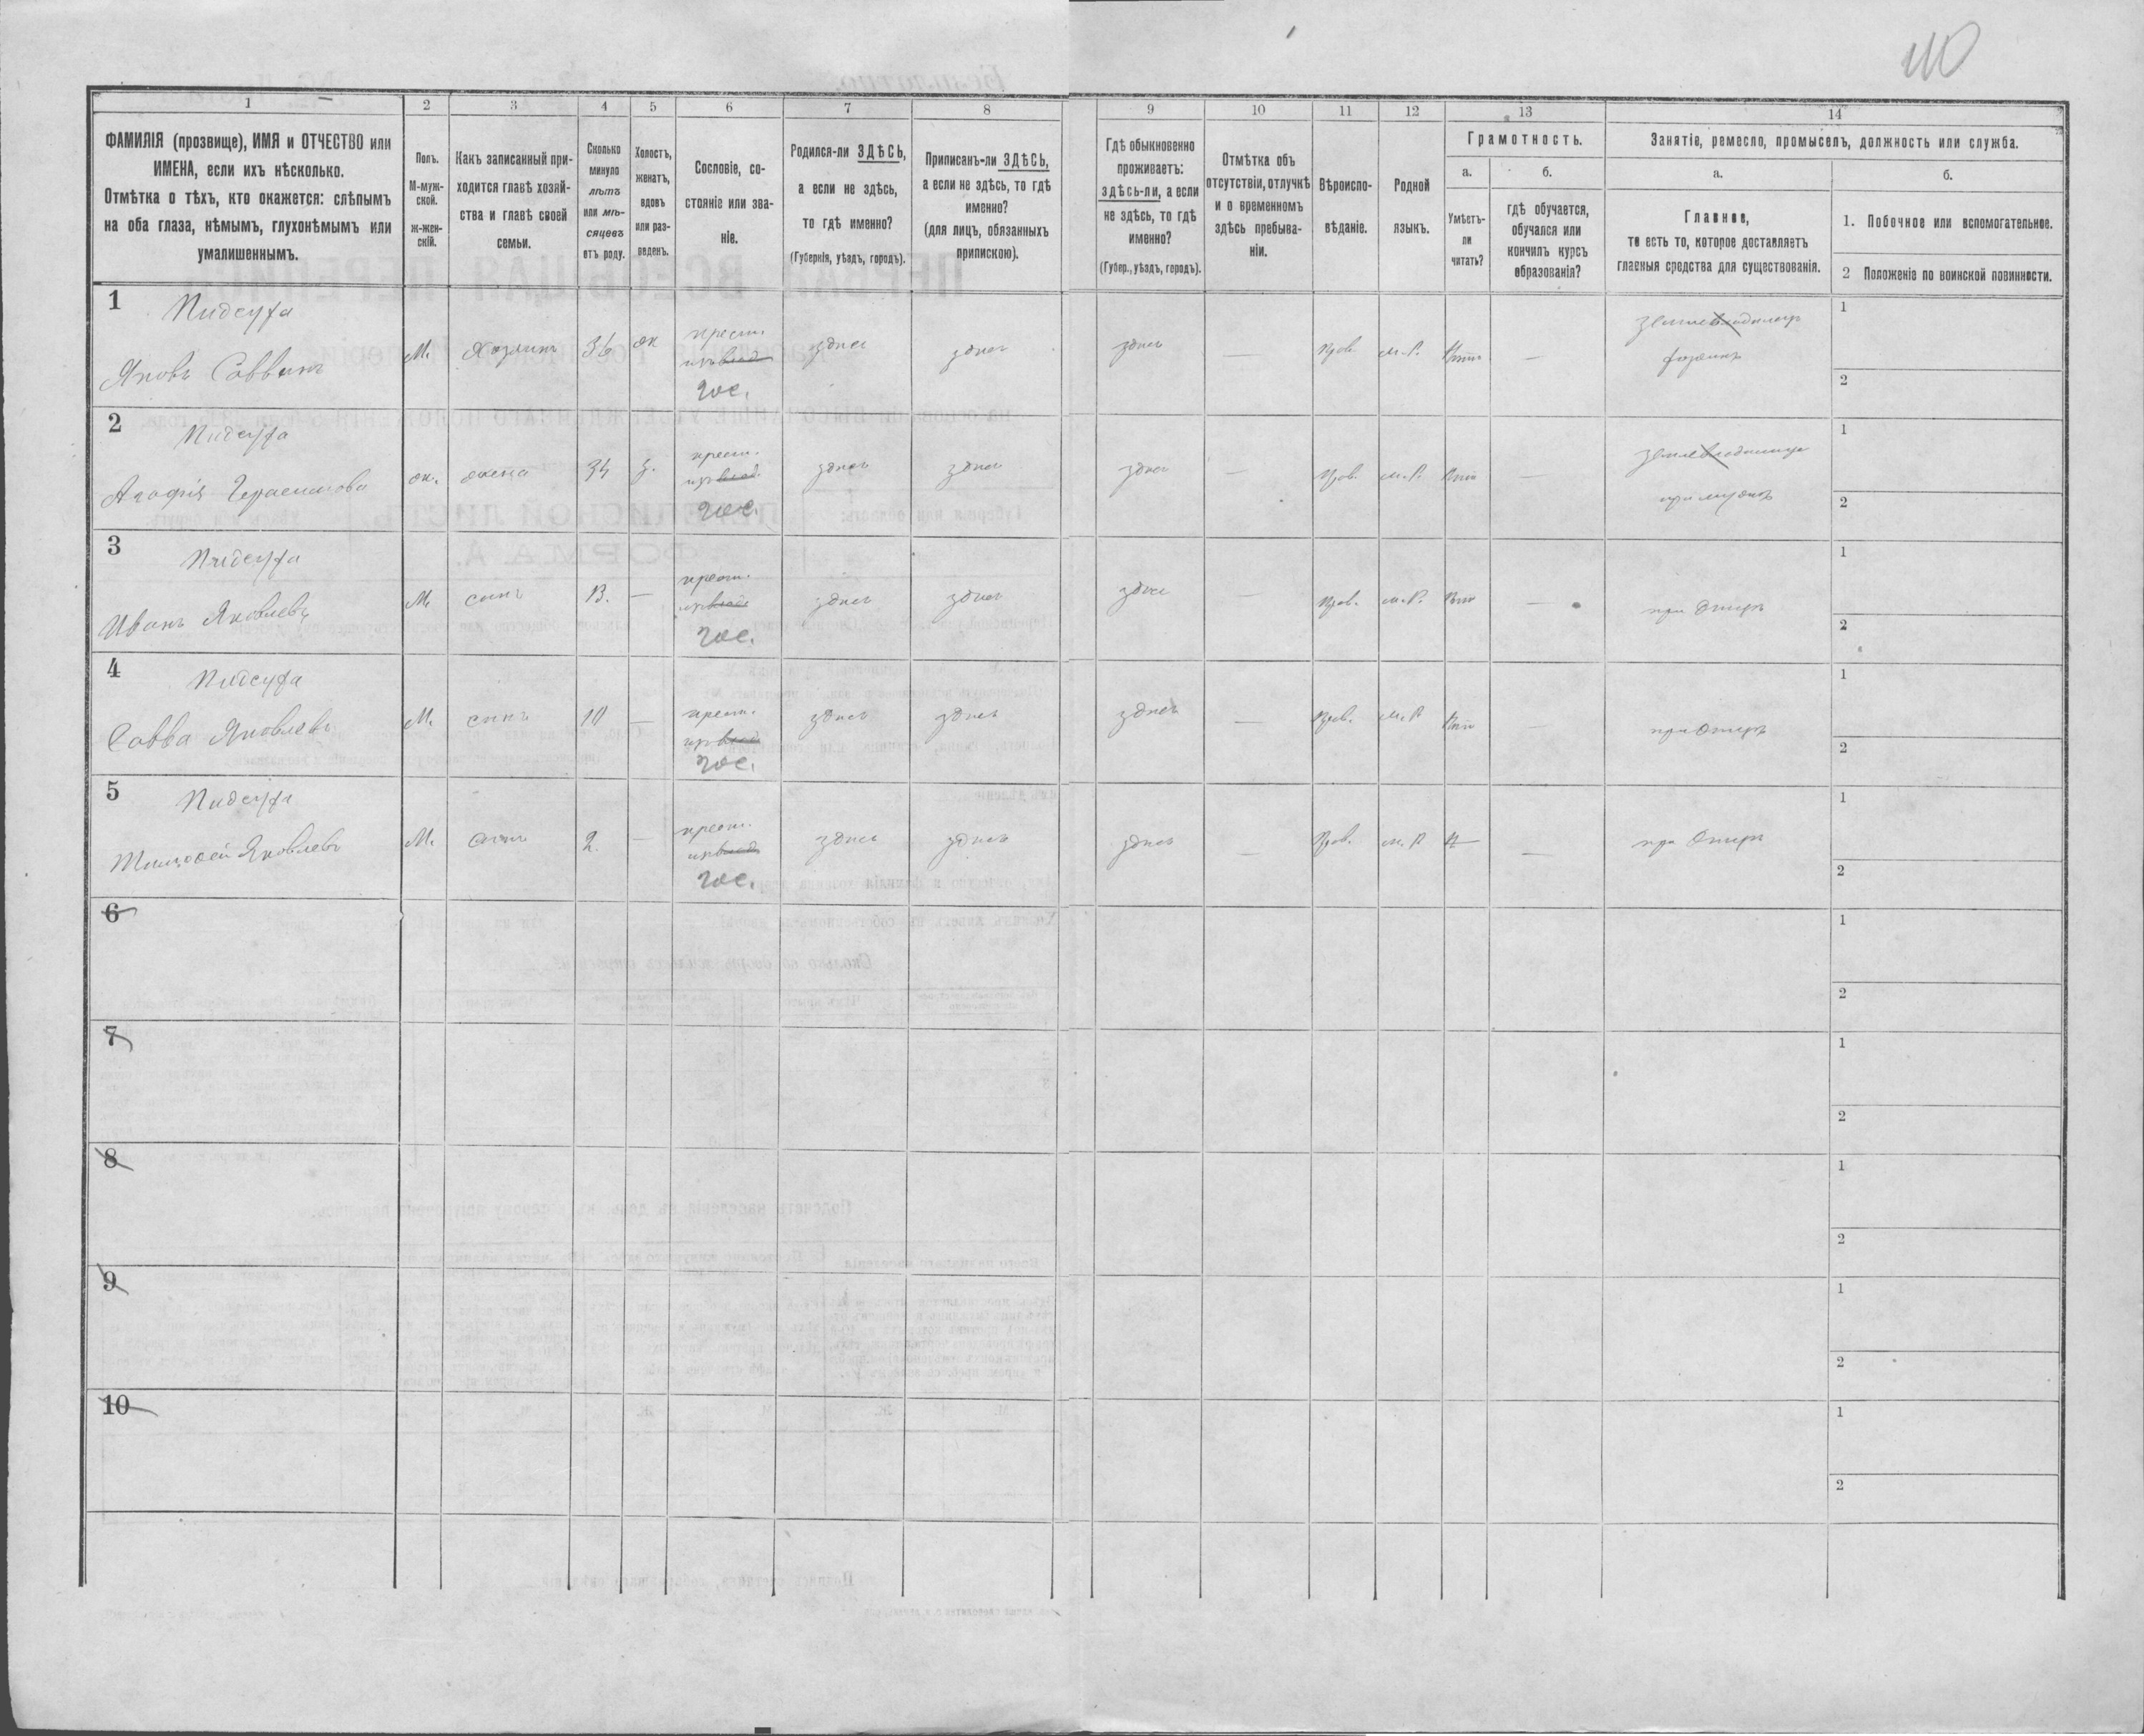 110
1 2 3 4 5 6 7 8 9 10 11 12 13 14
ФАМИЛІЯ (прозвище), ИМЯ и ОТЧЕСТВО или
ИМЕНА, если ихъ нѣсколько.
Отмѣтка о тѣхъ, кто окажется: слѣпымъ
на оба глаза, нѣмымъ, глухонѣмымъ или
умалишеннымъ.
Полъ.
М-муж-
ской.
ж-жен-
скій.
Какъ записанный при-
ходится главѣ хозяй-
ства и главѣ своей
семьи.
Сколько
минуло
лѣтъ
или мѣ-
сяцевъ
отъ роду.
Холостъ,
женатъ,
вдовъ
или раз-
веденъ.
Сословіе, со-
стояніе или зва-
ніе.
Родился-ли ЗДѢСЬ,
а если не здѣсь,
то гдѣ именно?
(Губернія, уѣздъ, городъ).
Приписанъ-ли ЗДѢСЬ,
а если не здѣсь, то гдѣ
именно?
(для лицъ, обязанныхъ
припискою).
Гдѣ обыкновенно
проживаетъ:
здѣсь-ли, а если
не здѣсь, то гдѣ
именно?
(Губер., уѣздъ, городъ).
Отмѣтка объ
отсутствіи, отлучкѣ
и о временномъ
здѣсь пребыва-
ніи.
Вѣроиспо-
вѣданіе.
Родной
языкъ.
Грамотность.
а.
Умѣетъ-
ли
читать?
б.
гдѣ обучается,
обучался или
кончилъ курсъ
образованія?
Занятіе, ремесло, промыселъ, должность или служба.
а.
Главное,
то есть то, которое доставляетъ
главныя средства для существованія.
б.
1. Побочное или вспомогательное.
2 Положеніе по воинской повинности.
1
Пидсуха
Яковъ Саввинъ
М. Хозяинъ 36 ж
крест.
гос.
здѣсь здѣсь здѣсь — Прав. М.Р. —
хозяинъ
1
2
2
Пидсуха
Агафія Герасимова
ж. жена з.
крест.
гос.
здѣсь здѣсь здѣсь — Прав. М.Р. —
при мужѣ
1
2
3
Пидсуха
Иванъ Яковлевъ
М. сынъ 13. —
крест.
гос.
здѣсь здѣсь здѣсь — Прав. М.Р. —
при отцѣ
1
2
4
Пидсуха
Савва Яковлевъ
М. сынъ 10 —
крест.
гос.
здѣсь здѣсь здѣсь — Прав. М.Р —
при отцѣ
1
2
5
Пидсуха
Тимофей Яковлевъ
М. сынъ 2. —
крест.
гос.
здѣсь здѣсь здѣсь — Прав. М.Р —
при отцѣ
1
2
6
1
2
7
1
2
8
1
2
9
1
2
10
1
2